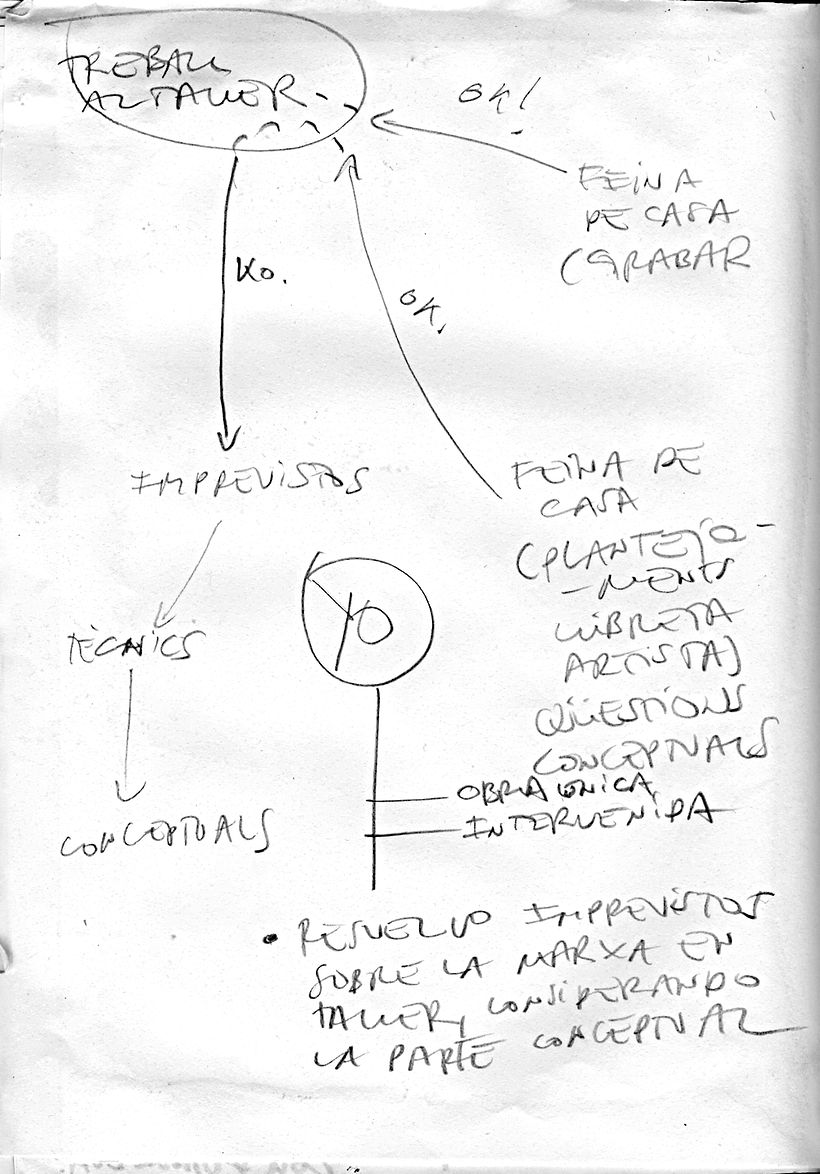 TREBALL
AL TALLER
OK!
FEINA
DE CASA
(GRABAR
KO.
OK.
IMPREVISTOS
FEINA DE
CASA
(PLANTEJA-
-MENTS
LLIBRETA
ARTISTA)
QÜESTIONS
CONCEPTUALS
TÈCNICS
YO
OBRA ÚNICA
INTERVENIDA
CONCEPTUALS
• RESUELVO IMPREVISTOS
SOBRE LA MARXA EN
TALLER, CONSIDERANDO
LA PARTE CONCEPTUAL